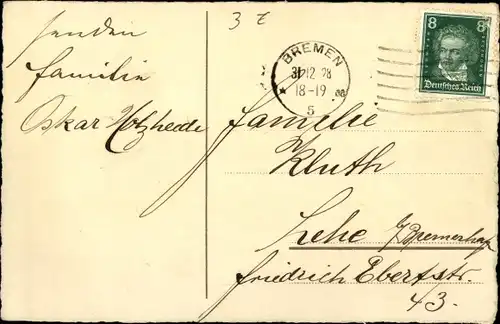 3 £
senden
familie
Oskar Holzheide
BREMEN
31.12.28
18-19
5
8 8
Deutsches Reich
Familie
Kluth
Lehe b/Bremerhav
Friedrich Ebertstr.
43.